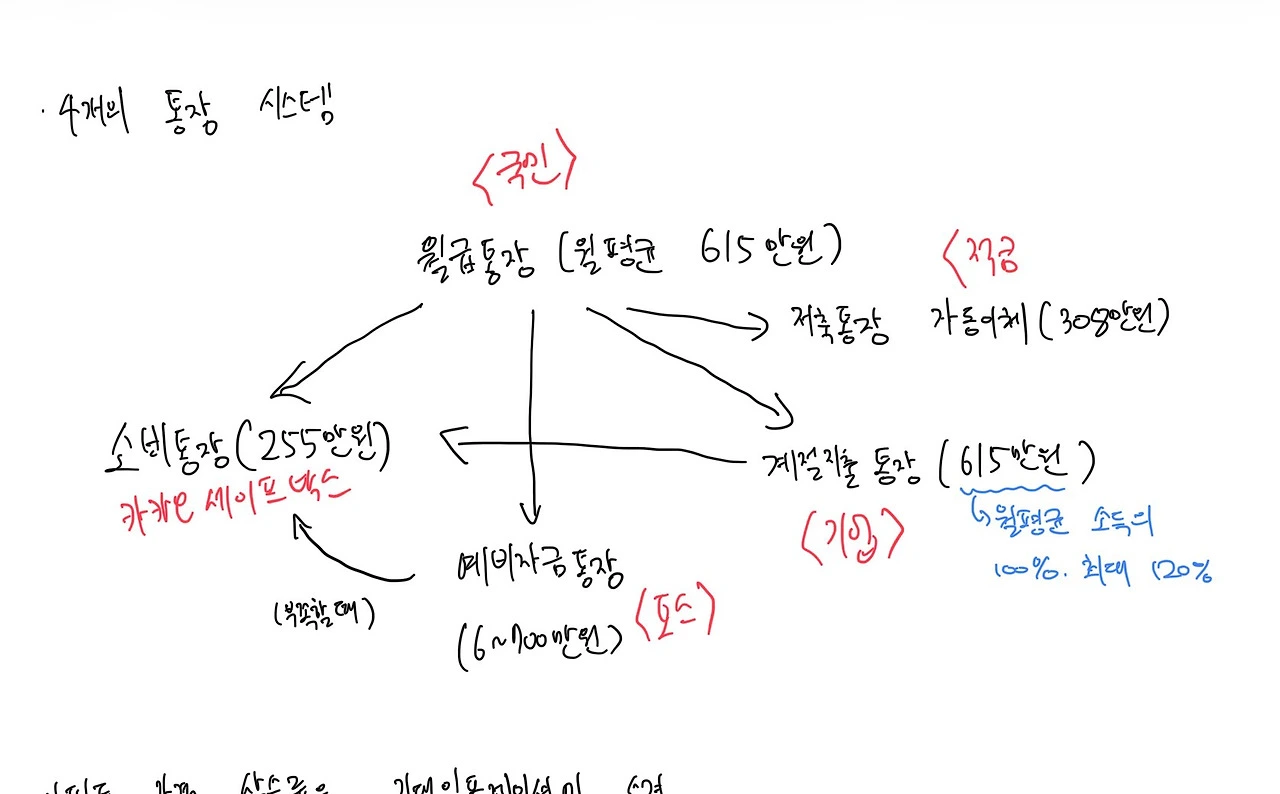 · 4개의 통장 시스템
<국민>
월급통장 (월평균 615만원)
<적금
저축통장 자동이체 (308만원)
소비통장 (255만원)
카카오 세이프박스
계절지출 통장 (615만원)
<기업>
↳ 월평균 소득의
100%. 최대 120%
예비자금통장
(부족할 때)
(6~700만원)
<토스>